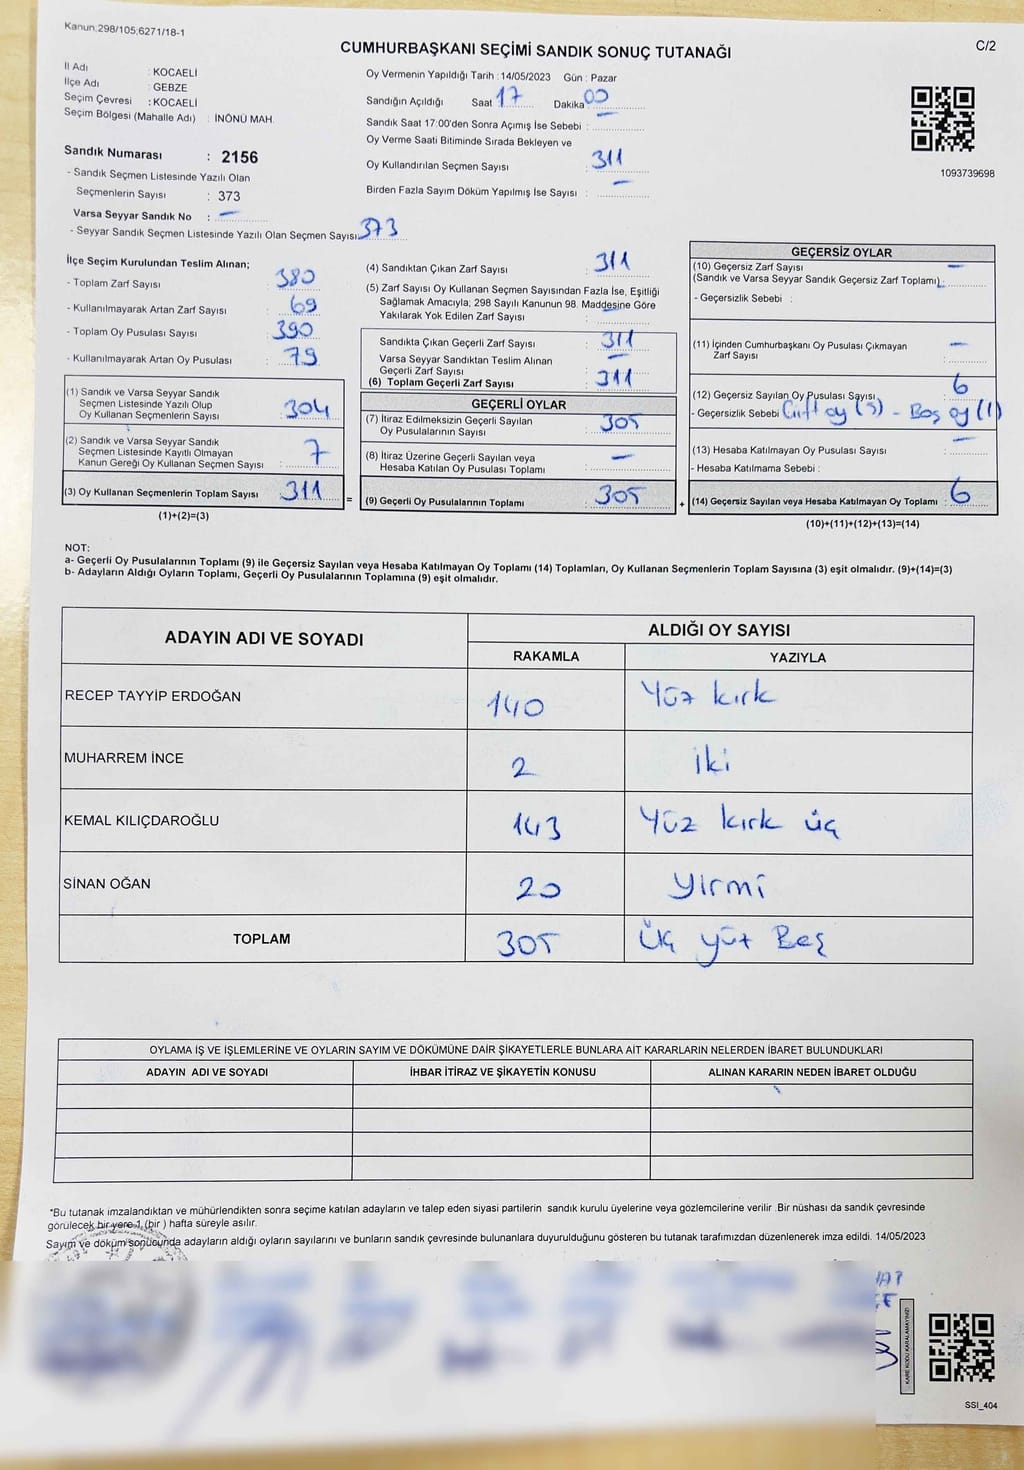 Kanun:298/105;6271/18-1
C/2
CUMHURBAŞKANI SEÇİMİ SANDIK SONUÇ TUTANAĞI
İl Adı : KOCAELİ
İlçe Adı : GEBZE
Seçim Çevresi : KOCAELİ
Seçim Bölgesi (Mahalle Adı) : İNÖNÜ MAH.
Sandık Numarası : 2156
- Sandık Seçmen Listesinde Yazılı Olan
Seçmenlerin Sayısı : 373
Varsa Seyyar Sandık No : -
- Seyyar Sandık Seçmen Listesinde Yazılı Olan Seçmen Sayısı 373
Oy Vermenin Yapıldığı Tarih : 14/05/2023 Gün : Pazar
Sandığın Açıldığı Saat 17 Dakika 00
Sandık Saat 17:00'den Sonra Açımış İse Sebebi : -
Oy Verme Saati Bitiminde Sırada Bekleyen ve
Oy Kullandırılan Seçmen Sayısı : 311
Birden Fazla Sayım Döküm Yapılmış İse Sayısı : -
1093739698
İlçe Seçim Kurulundan Teslim Alınan;
- Toplam Zarf Sayısı : 380
- Kullanılmayarak Artan Zarf Sayısı : 69
- Toplam Oy Pusulası Sayısı : 390
- Kullanılmayarak Artan Oy Pusulası : 79
(1) Sandık ve Varsa Seyyar Sandık
Seçmen Listesinde Yazılı Olup
Oy Kullanan Seçmenlerin Sayısı : 304
(2) Sandık ve Varsa Seyyar Sandık
Seçmen Listesinde Kayıtlı Olmayan
Kanun Gereği Oy Kullanan Seçmen Sayısı : 7
(3) Oy Kullanan Seçmenlerin Toplam Sayısı : 311 =
(1)+(2)=(3)
(4) Sandıktan Çıkan Zarf Sayısı : 311
(5) Zarf Sayısı Oy Kullanan Seçmen Sayısından Fazla İse, Eşitliği
Sağlamak Amacıyla; 298 Sayılı Kanunun 98. Maddesine Göre
Yakılarak Yok Edilen Zarf Sayısı : -
Sandıkta Çıkan Geçerli Zarf Sayısı : 311
Varsa Seyyar Sandıktan Teslim Alınan
Geçerli Zarf Sayısı : -
(6) Toplam Geçerli Zarf Sayısı : 311
GEÇERLİ OYLAR
(7) İtiraz Edilmeksizin Geçerli Sayılan
Oy Pusulalarının Sayısı : 305
(8) İtiraz Üzerine Geçerli Sayılan veya
Hesaba Katılan Oy Pusulası Toplamı : -
(9) Geçerli Oy Pusulalarının Toplamı : 305 +
GEÇERSİZ OYLAR
(10) Geçersiz Zarf Sayısı -
(Sandık ve Varsa Seyyar Sandık Geçersiz Zarf Toplamı) :
- Geçersizlik Sebebi :
(11) İçinden Cumhurbaşkanı Oy Pusulası Çıkmayan
Zarf Sayısı : -
(12) Geçersiz Sayılan Oy Pusulası Sayısı : 6
- Geçersizlik Sebebi : Çift oy (5) - Boş oy (1)
(13) Hesaba Katılmayan Oy Pusulası Sayısı : -
- Hesaba Katılmama Sebebi :
(14) Geçersiz Sayılan veya Hesaba Katılmayan Oy Toplamı : 6
(10)+(11)+(12)+(13)=(14)
NOT:
a- Geçerli Oy Pusulalarının Toplamı (9) ile Geçersiz Sayılan veya Hesaba Katılmayan Oy Toplamı (14) Toplamları, Oy Kullanan Seçmenlerin Toplam Sayısına (3) eşit olmalıdır. (9)+(14)=(3)
b- Adayların Aldığı Oyların Toplamı, Geçerli Oy Pusulalarının Toplamına (9) eşit olmalıdır.
ADAYIN ADI VE SOYADI
ALDIĞI OY SAYISI
RAKAMLA YAZIYLA
RECEP TAYYİP ERDOĞAN 140 Yüz kırk
MUHARREM İNCE 2 iki
KEMAL KILIÇDAROĞLU 143 Yüz kırk üç
SİNAN OĞAN 20 Yirmi
TOPLAM 305 Üç yüz Beş
OYLAMA İŞ VE İŞLEMLERİNE VE OYLARIN SAYIM VE DÖKÜMÜNE DAİR ŞİKAYETLERLE BUNLARA AİT KARARLARIN NELERDEN İBARET BULUNDUKLARI
ADAYIN ADI VE SOYADI İHBAR İTİRAZ VE ŞİKAYETİN KONUSU ALINAN KARARIN NEDEN İBARET OLDUĞU
*Bu tutanak imzalandıktan ve mühürlendikten sonra seçime katılan adayların ve talep eden siyasi partilerin sandık kurulu üyelerine veya gözlemcilerine verilir .Bir nüshası da sandık çevresinde
görülecek bir yere 1 (bir ) hafta süreyle asılır.
Sayım ve döküm sonucunda adayların aldığı oyların sayılarını ve bunların sandık çevresinde bulunanlara duyurulduğunu gösteren bu tutanak tarafımızdan düzenlenerek imza edildi. 14/05/2023
KARE KODU KARALAMAYINIZ!
SSİ_404